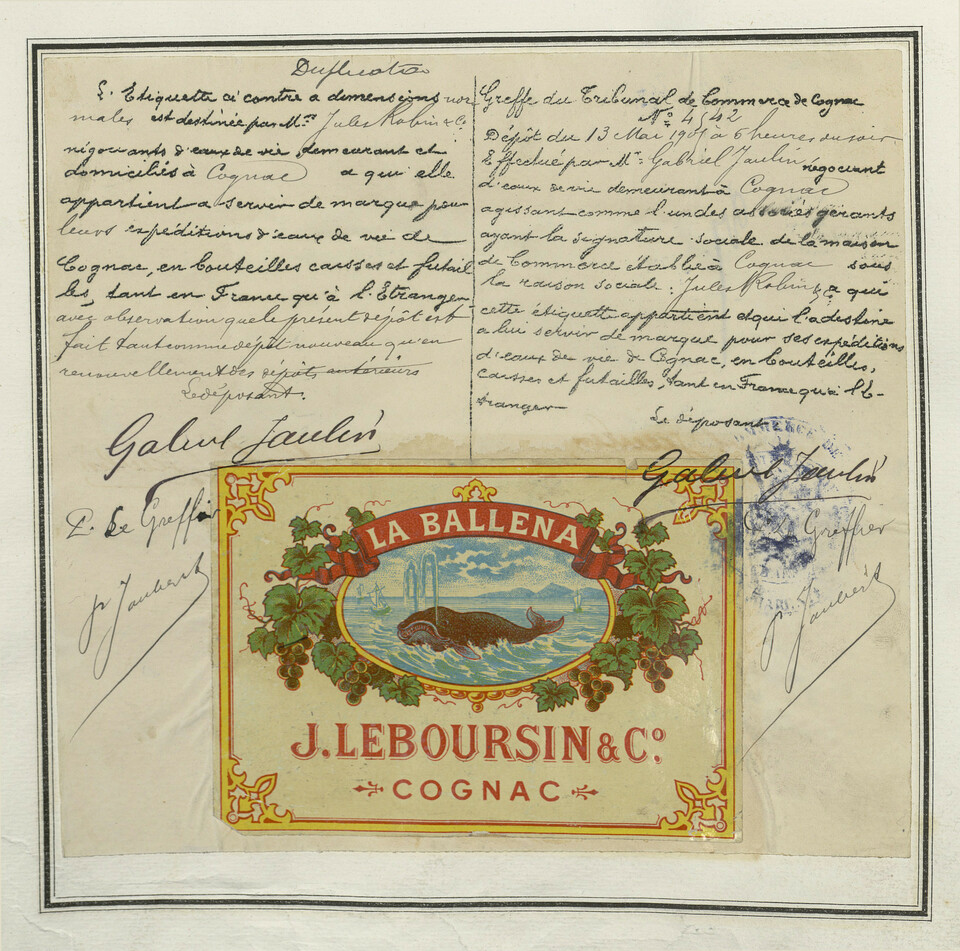 Duplicata
L'Etiquette ci contre a dimensions nor
males est destinée par M.rs Jules Robin & Cº
négociants d'eaux de vie, demeurant et
domiciliés à Cognac a qui elle
appartient a servir de marque pour
leurs expéditions d'eaux de vie de
Cognac, en bouteilles caisses et futail
les, tant en France qu'à l'Etranger
avec observation que le présent dépôt est
fait tant comme dépôt nouveau qu'en
renouvellement des dépôts antérieurs
Le déposant.
Gabriel Jaulin
P. Le Greffier
P Jaubert
Greffe du Tribunal de Commerce de Cognac
Nº 4542
Dépôt du 13 Mai 1901 à 6 heures du soir
Effectué par M.r Gabriel Jaulin négociant
d'eaux de vie demeurant à Cognac
agissant comme l'un des associés gérants
ayant la signature sociale de la maison
de Commerce établie à Cognac sous
la raison sociale: Jules Robin & Cº a qui
cette étiquette appartient et qui l'a destine
a lui servir de marque pour ses expéditions
d'eaux de vie de Cognac, en bouteilles,
caisses et futailles, tant en France qu'a l'E-
tranger
Le déposant
Gabriel Jaulin
P. Le Greffier
P Jaubert
LA BALLENA
J. LEBOURSIN & Cº
COGNAC